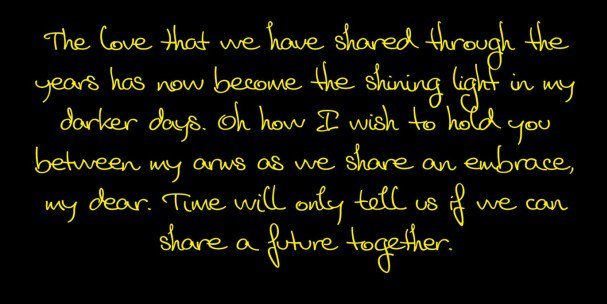 The love that we have shared through the
years has now become the shining light in my
darker days. Oh how I wish to hold you
between my arms as we share an embrace,
my dear. Time will only tell us if we can
share a future together.